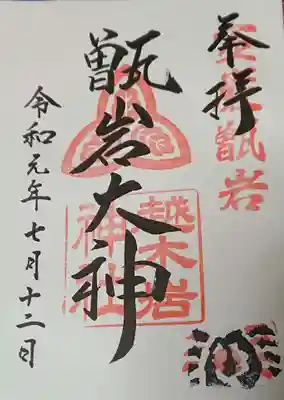 奉拝
霊験甑岩
甑岩大神
越木岩
神社
令和元年七月十二日